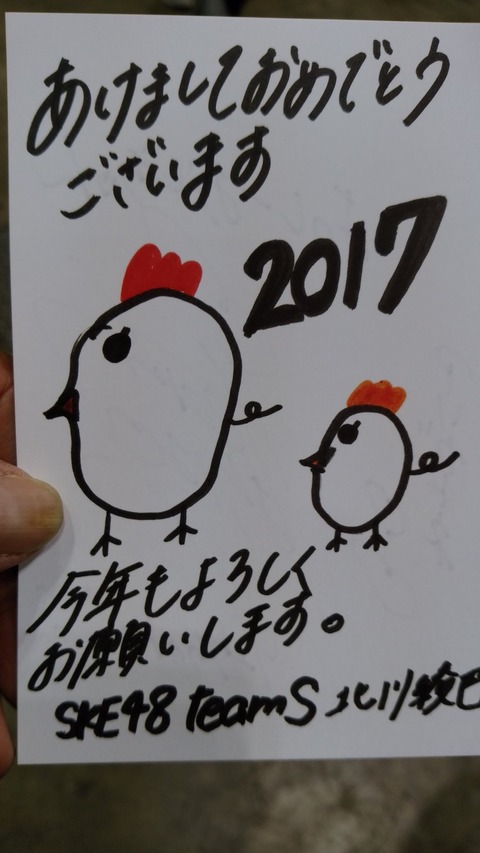 あけましておめでとう
ございます
2017
今年もよろしく
お願いします。
SKE48 teamS 北川綾巴